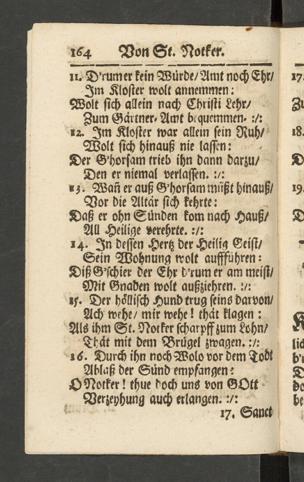 164 Von St. Notker.
11. D'rum er kein Würde/ Amt noch Ehr/
Im Kloster wolt annemmen:
Wolt sich allein nach Christi Lehr/
Zum Gärtner-Amt bequemmen. :/:
12. Im Kloster war allein sein Ruh/
Wolt sich hinauß nie lassen:
Der G'horsam trieb ihn dann darzu/
Den er niemal verlassen. :/:
13. Wañ er auß G'horsam müßt hinauß/
Vor die Altär sich kehrte:
Daß er ohn Sünden kom nach Hauß/
All Heilige verehrte. :/:
14. In dessen Hertz der Heilig Geist/
Sein Wohnung wolt aufführen:
Diß G'schier der Ehr d'rum er am meist/
Mit Gnaden wolt außziehren. :/:
15. Der höllisch Hund trug seins darvon/
Ach wehe/ mir wehe! thät klagen:
Als ihm St. Notker scharpff zum Lohn/
Thät mit dem Brügel zwagen. :/:
16. Durch ihn noch Wolo vor dem Todt
Ablaß der Sünd empfangen:
O Notker! thue doch uns von GOtt
Verzeyhung auch erlangen. :/:
17. Sanct